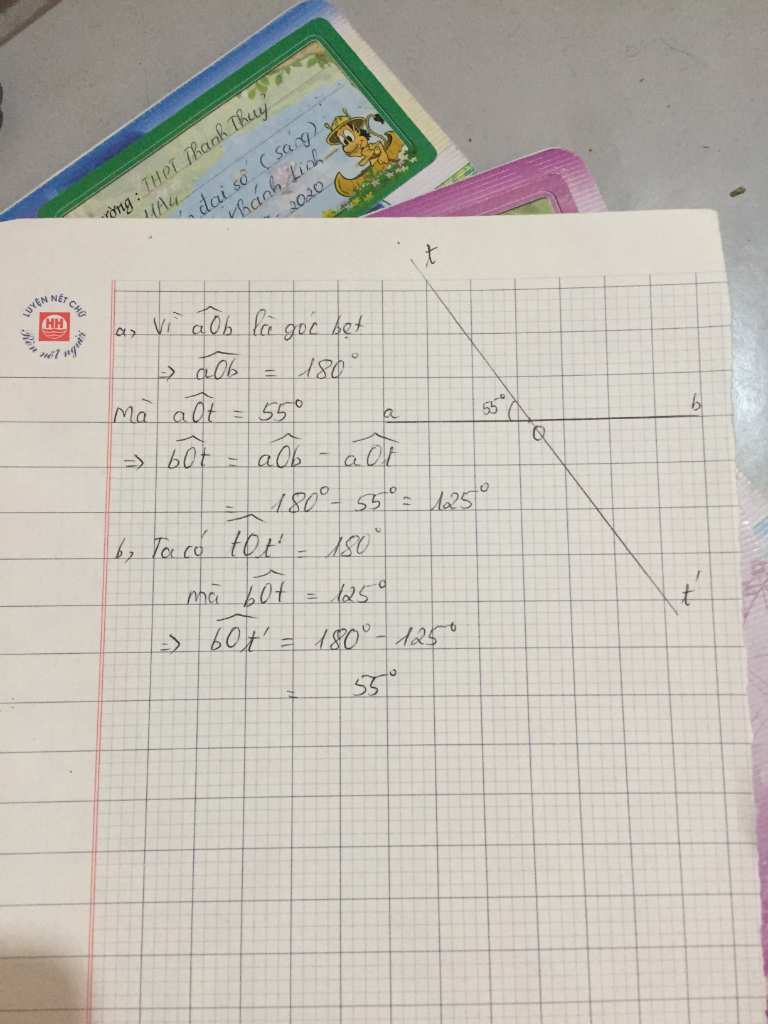 THPT Thanh Thuỷ
11A4
dai số (sáng)
Khánh Linh
2020
LUYỆN NÉT CHỮ
HH
Rèn nết người
a, Vì aOb là góc bẹt
=> aOb = 180°
mà aOt = 55°
=> bOt = aOb - aOt
= 180° - 55° = 125°
b, Ta có tOt' = 180°
mà bOt = 125°
=> bOt' = 180° - 125°
= 55°
t
a 55° b
O
t'